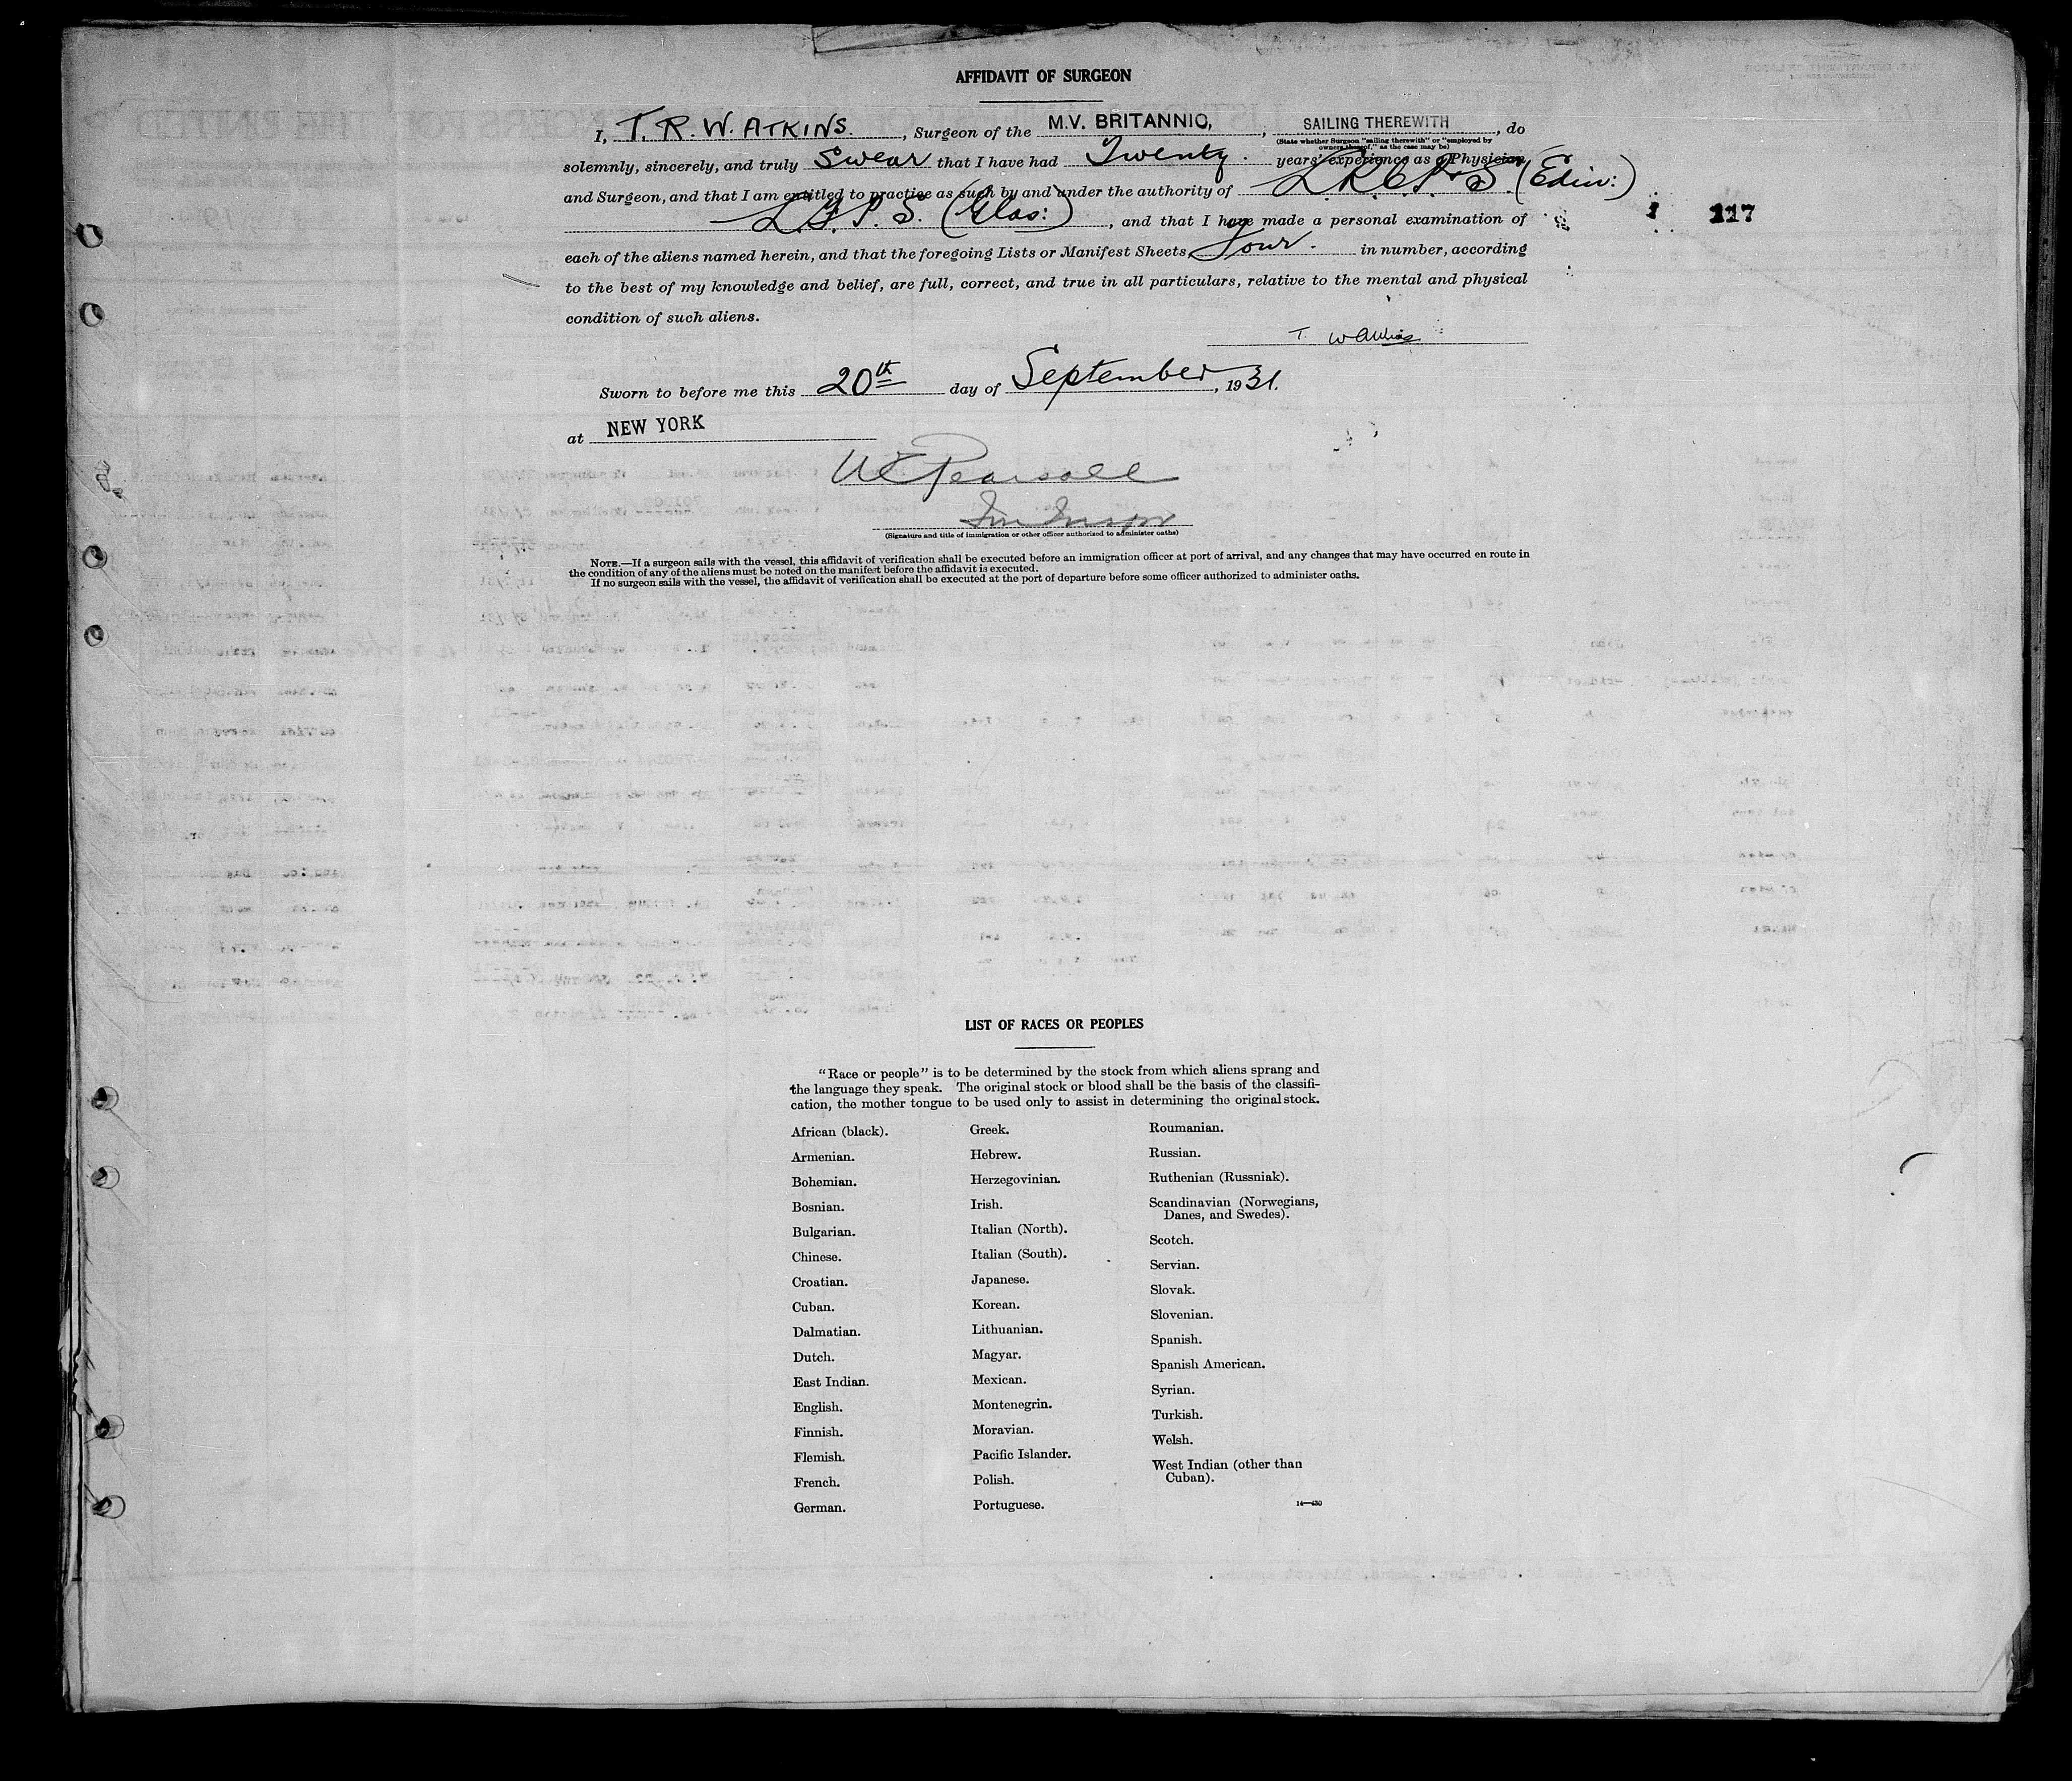 AFFIDAVIT OF SURGEON
I, T. R. W. ATKINS., Surgeon of the M.V. BRITANNIC, , SAILING THEREWITH, do
(State whether Surgeon "sailing therewith" or "employed by
owners thereof," as the case may be)
solemnly, sincerely, and truly swear that I have had Twenty. years' experience as a Physician
and Surgeon, and that I am entitled to practice as such by and under the authority of L.R.C.P. & S. (Edin:)
L.F.P.S. (Glas:), and that I have made a personal examination of
117
each of the aliens named herein, and that the foregoing Lists or Manifest Sheets, four. in number, according
to the best of my knowledge and belief, are full, correct, and true in all particulars, relative to the mental and physical
condition of such aliens.
T. WAtkins
Sworn to before me this 20th day of September, 1931.
at NEW YORK
WE Pearsall
Im Inspr
(Signature and title of immigration or other officer authorized to administer oaths)
NOTE.—If a surgeon sails with the vessel, this affidavit of verification shall be executed before an immigration officer at port of arrival, and any changes that may have occurred en route in
the condition of any of the aliens must be noted on the manifest before the affidavit is executed.
If no surgeon sails with the vessel, the affidavit of verification shall be executed at the port of departure before some officer authorized to administer oaths.
LIST OF RACES OR PEOPLES
"Race or people" is to be determined by the stock from which aliens sprang and
the language they speak. The original stock or blood shall be the basis of the classifi-
cation, the mother tongue to be used only to assist in determining the original stock.
African (black).
Armenian.
Bohemian.
Bosnian.
Bulgarian.
Chinese.
Croatian.
Cuban.
Dalmatian.
Dutch.
East Indian.
English.
Finnish.
Flemish.
French.
German.
Greek.
Hebrew.
Herzegovinian.
Irish.
Italian (North).
Italian (South).
Japanese.
Korean.
Lithuanian.
Magyar.
Mexican.
Montenegrin.
Moravian.
Pacific Islander.
Polish.
Portuguese.
Roumanian.
Russian.
Ruthenian (Russniak).
Scandinavian (Norwegians,
Danes, and Swedes).
Scotch.
Servian.
Slovak.
Slovenian.
Spanish.
Spanish American.
Syrian.
Turkish.
Welsh.
West Indian (other than
Cuban).